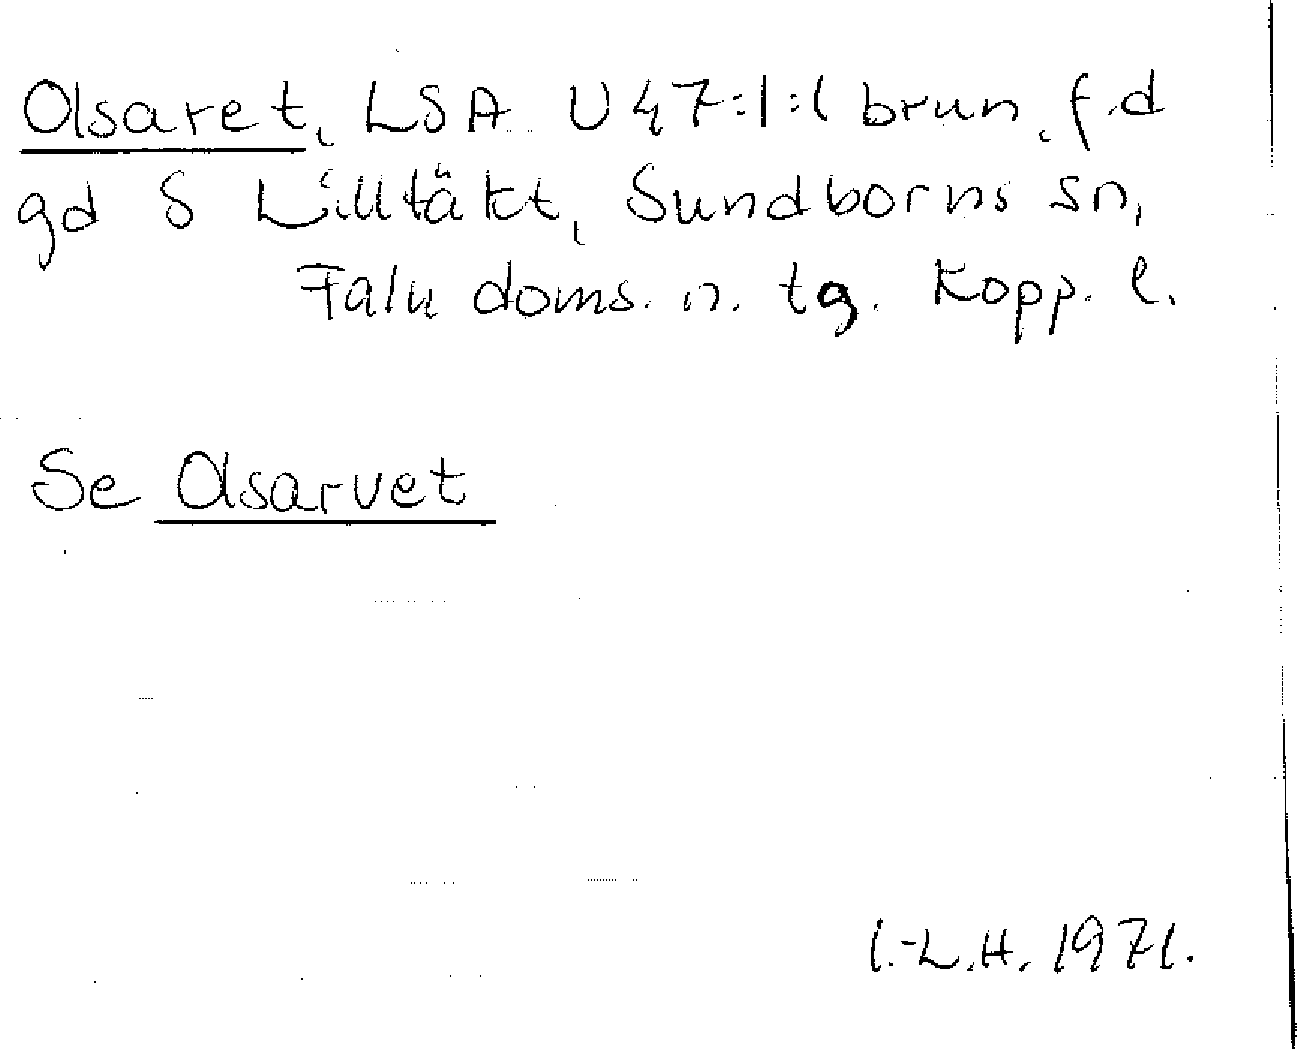 Olsaret, LSA U47:1:1 brun, f.d
gd S Lilltäkt, Sundborns sn,
Falu doms. n. tg. Kopp. l.
Se Olsarvet
I.-L.H. 1971.